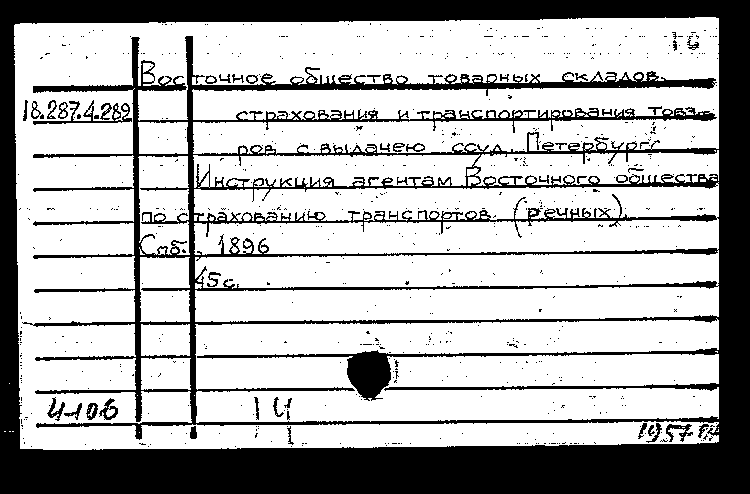 16
Восточное общество товарных складов,
18.287.4.289
страхования и транспортирования това-
ров с выдачею ссуд, Петербург.
Инструкция агентам Восточного общества
по страхованию транспортов (речных).
Спб., 1896
45 с.
4-106
14
1957